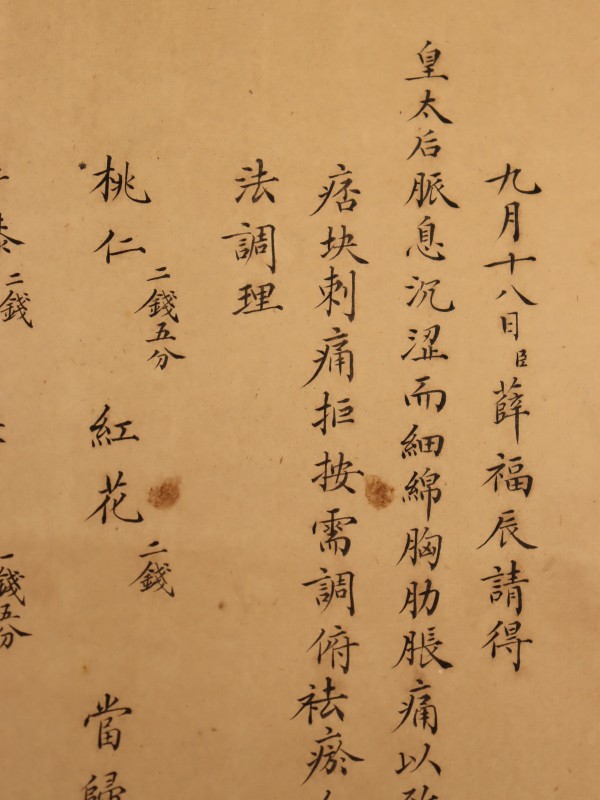 九月十八日臣薛福辰請得
皇太后脈息沉涩而細綿胸肋脹痛以致
痞块刺痛拒按需調俯祛瘀
法調理
桃仁二錢五分 紅花二錢 當歸
二錢 一錢五分